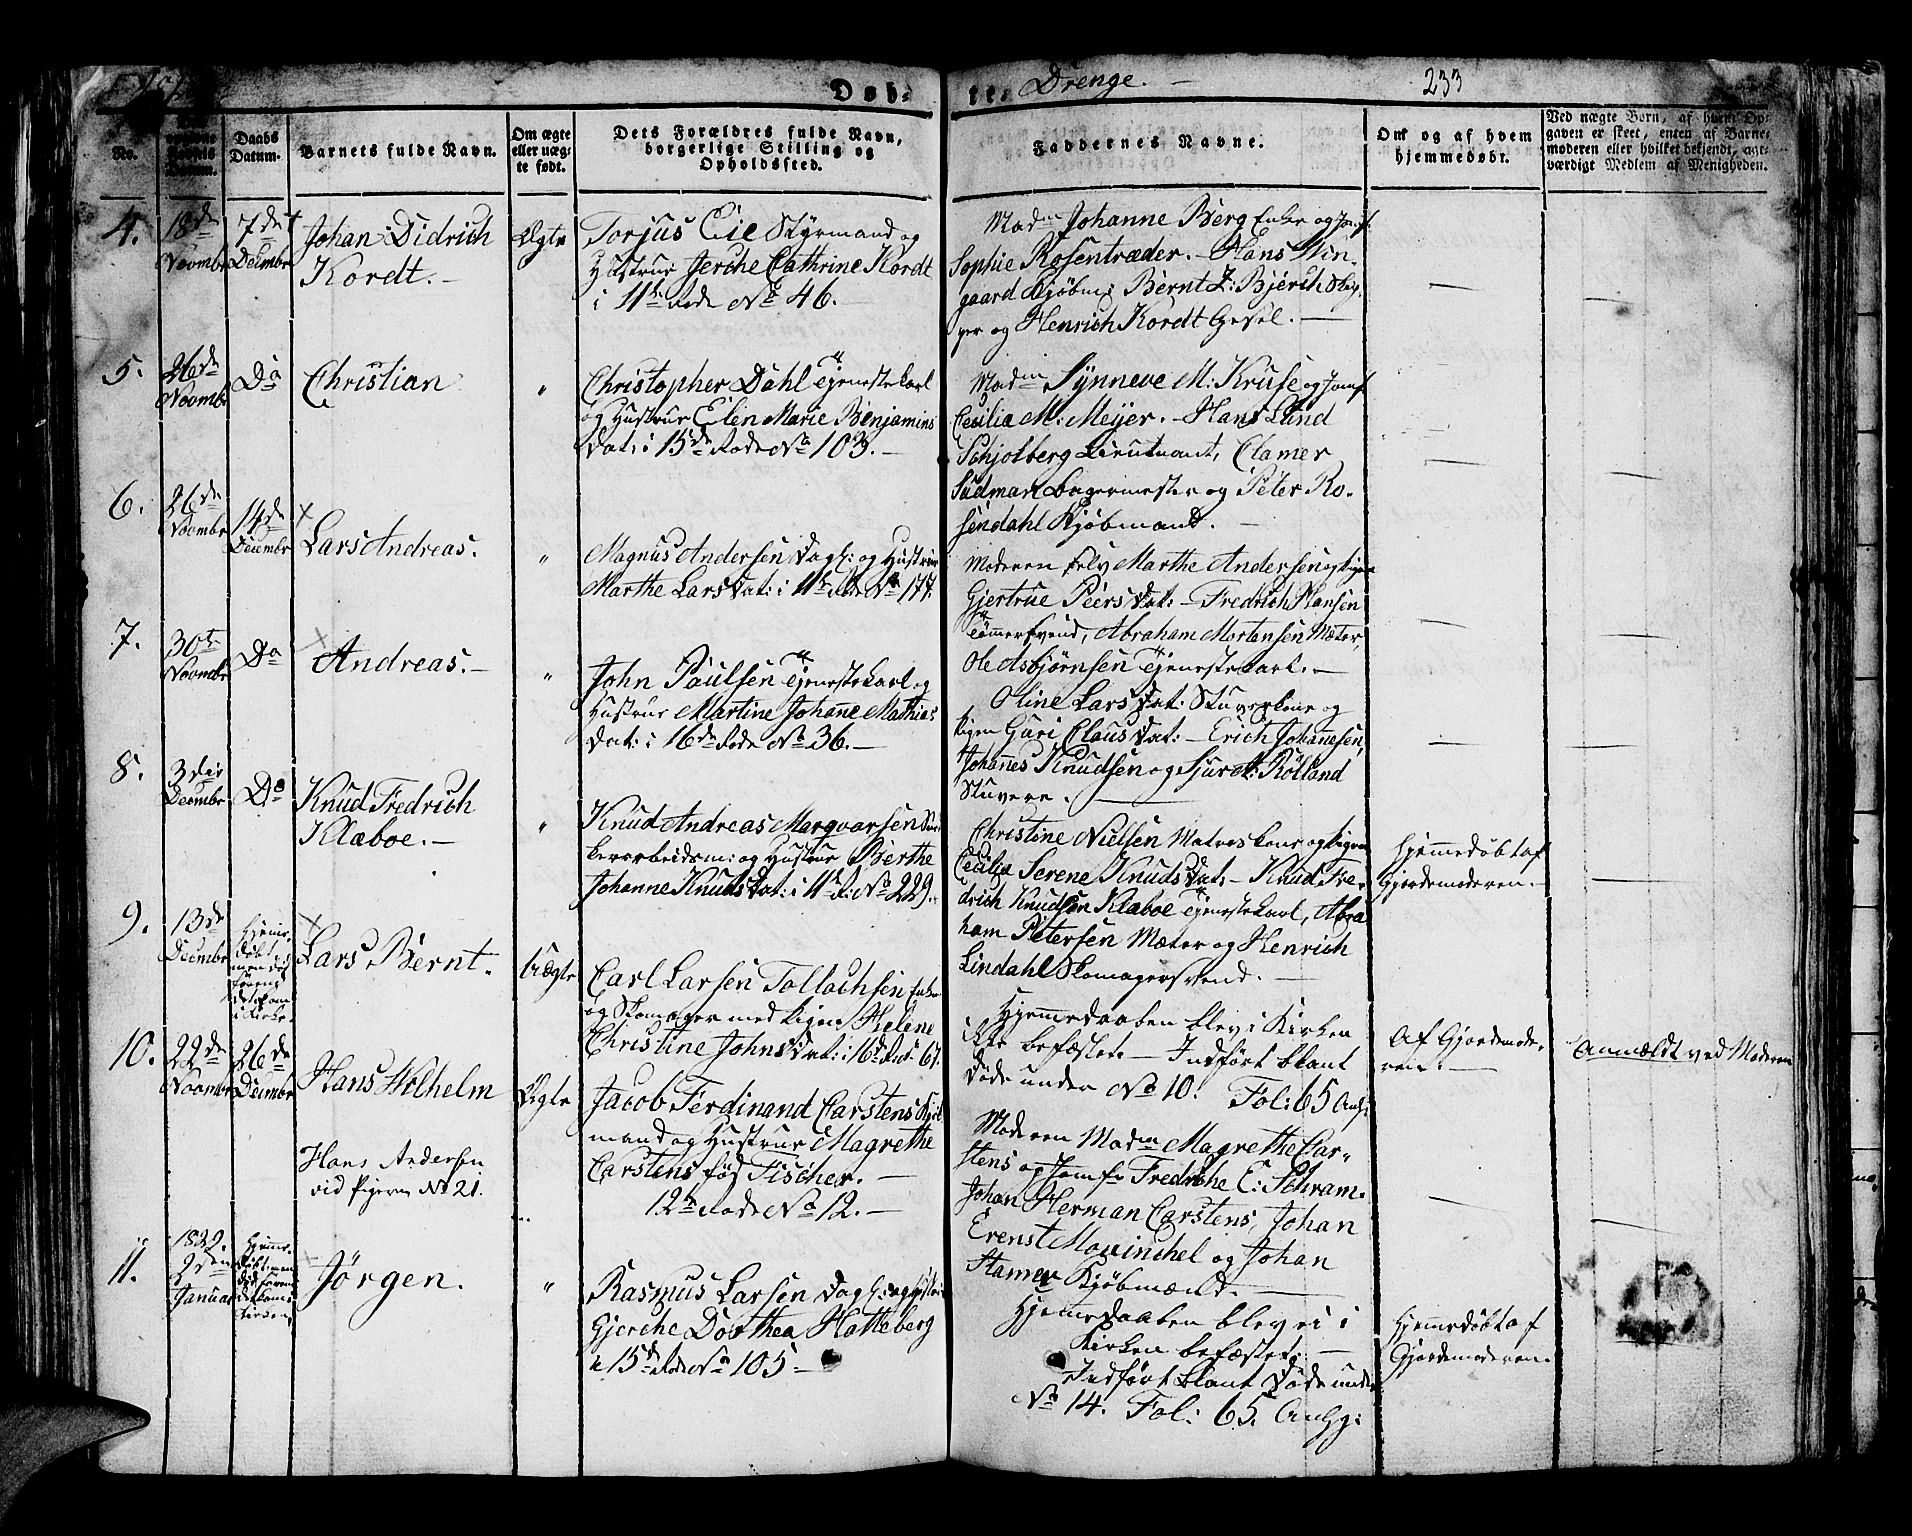 Døb-
te. Drenge. —
233
No.
Daabs
Datum.
Barnets fulde Navn.
Om ægte
eller uæg-
te født.
Dets Forældres fulde Navn,
borgerlige Stilling og
Opholdssted.
Faddernes Navne.
Om og af hvem
hjemmedøbt.
Ved uægte Børn, af hvem Op-
gaven er skeet, enten af Barne-
moderen eller hvilket bekjendt, agt-
værdigt Medlem af Menigheden.
4.
18de
Novmbr
7de
Decmbr
Johan Didrich
Kordt. —
Ægte
Torjus Eie Styrmand og
Hustrue Jerche Cathrine Kordt
i 11te Rode No 46. —
Madm Johanne Berg Enke og Jomf.
Sophie Rosentræder. — Hans Win-
gaard Kjøbm: Bernt Z: Bjerch
og Henrich Kordt Gesel. —
5.
26de
Novmbr
Do
Christian
"
Christopher Dahl Tjenestekarl
og Hustrue Elen Marie Benjamins
Dat: i 15de Rode No 103. —
Madm Synneve M: Kruse og Jomf
Cecilia M: Meyer. — Hans Lund
Schjolberg Lieutnant, Clamer
Sudman Bagermester og Peter Ro-
sendahl Kjøbmand. —
6.
26de
Novmbr
14de
Decmbr
Lars Andreas.
"
Magnus Andersen Dagk: og Hustrue
Marthe Lars Dat: i 11te Rode No 177.
Moderen selv Marthe Andersen og Pigen
Gjertrue Peers Dat: — Fredrich Hansen
Tømmersvend, Abraham Mortensen Mæter,
Ole Asbjørnsen Tjenestekarl. —
7.
30te
Novmbr
Do
Andreas. —
"
John Paulsen Tjenestekarl og
Hustrue Martine Johane Mathias
Dat: i 16de Rode No 36. —
Oline Lars Dat: Stuverkone og
Pigen Guri Claus Dat: — Erich Johannesen,
Johanes Knudsen og Sjur Rolland
Stuvere. —
8.
3die
Decmbr
Do
Knud Fredrich
Klæboe. —
"
Knud Andreas Marqvarsen
og Hustrue Berthe
Johanne Knuds Dat: i 11te R: No 229.
Christine Nielsen Matroskone og Pigen
Cecilia Serene Knuds Dat: — Knud Fre-
drich Knudsen Klæboe Tjenestekarl, Abra
ham Petersen Mæter og Henrich
Lindahl Skomagersvend. —
Hjemmedøbt af
Gjordemoderen. —
9.
13de
Decmbr
Hjemme-
døbt,
men døde
førend
det kom
i Kirke.
Lars Bernt.
Uægte
Carl Larsen Tollachsen Enke
og Skomager med Pigen Helene
Christine Johns Dat: i 16de Rode 67.
Hjemmedaaben blev i Kirken
ikke befæstet — Indført blant
Døde under No 10. Fol: 65 Anhg:
Af Gjordemode-
ren. —
Anmældt ved Moderen
10.
22de
Novmbr
26de
Decmbr
Hans Wilhelm
Ægte
Jacob Ferdinand Carstens Kjøb
mand og Hustrue Magrethe
Carstens fød Fischer. —
12te Rode No 12. —
Hans Andersen
vid Pigerne No 21.
Moderen Madm Magrethe Car-
stens og Jomfr Fredriche C: Schram.
Johan Herman Carstens, Johan
Erenst Mowinchel og Johan
Stamer Kjøbmænd. —
11.
1822.
2den
Januar
Hjemme-
døbt, men
død førend
det kom i
Kirken
Jørgen.
"
Rasmus Larsen Dagk: og Hustrue
Gjerche Dorthea Hatteberg
i 15de Rode No 105 —
Hjemmedaaben blev ei i
Kirken befæstet. —
Indført blant Døde under
No 14. Fol: 65. Anhg:
Hjemmedøbt af
Gjordemoderen.